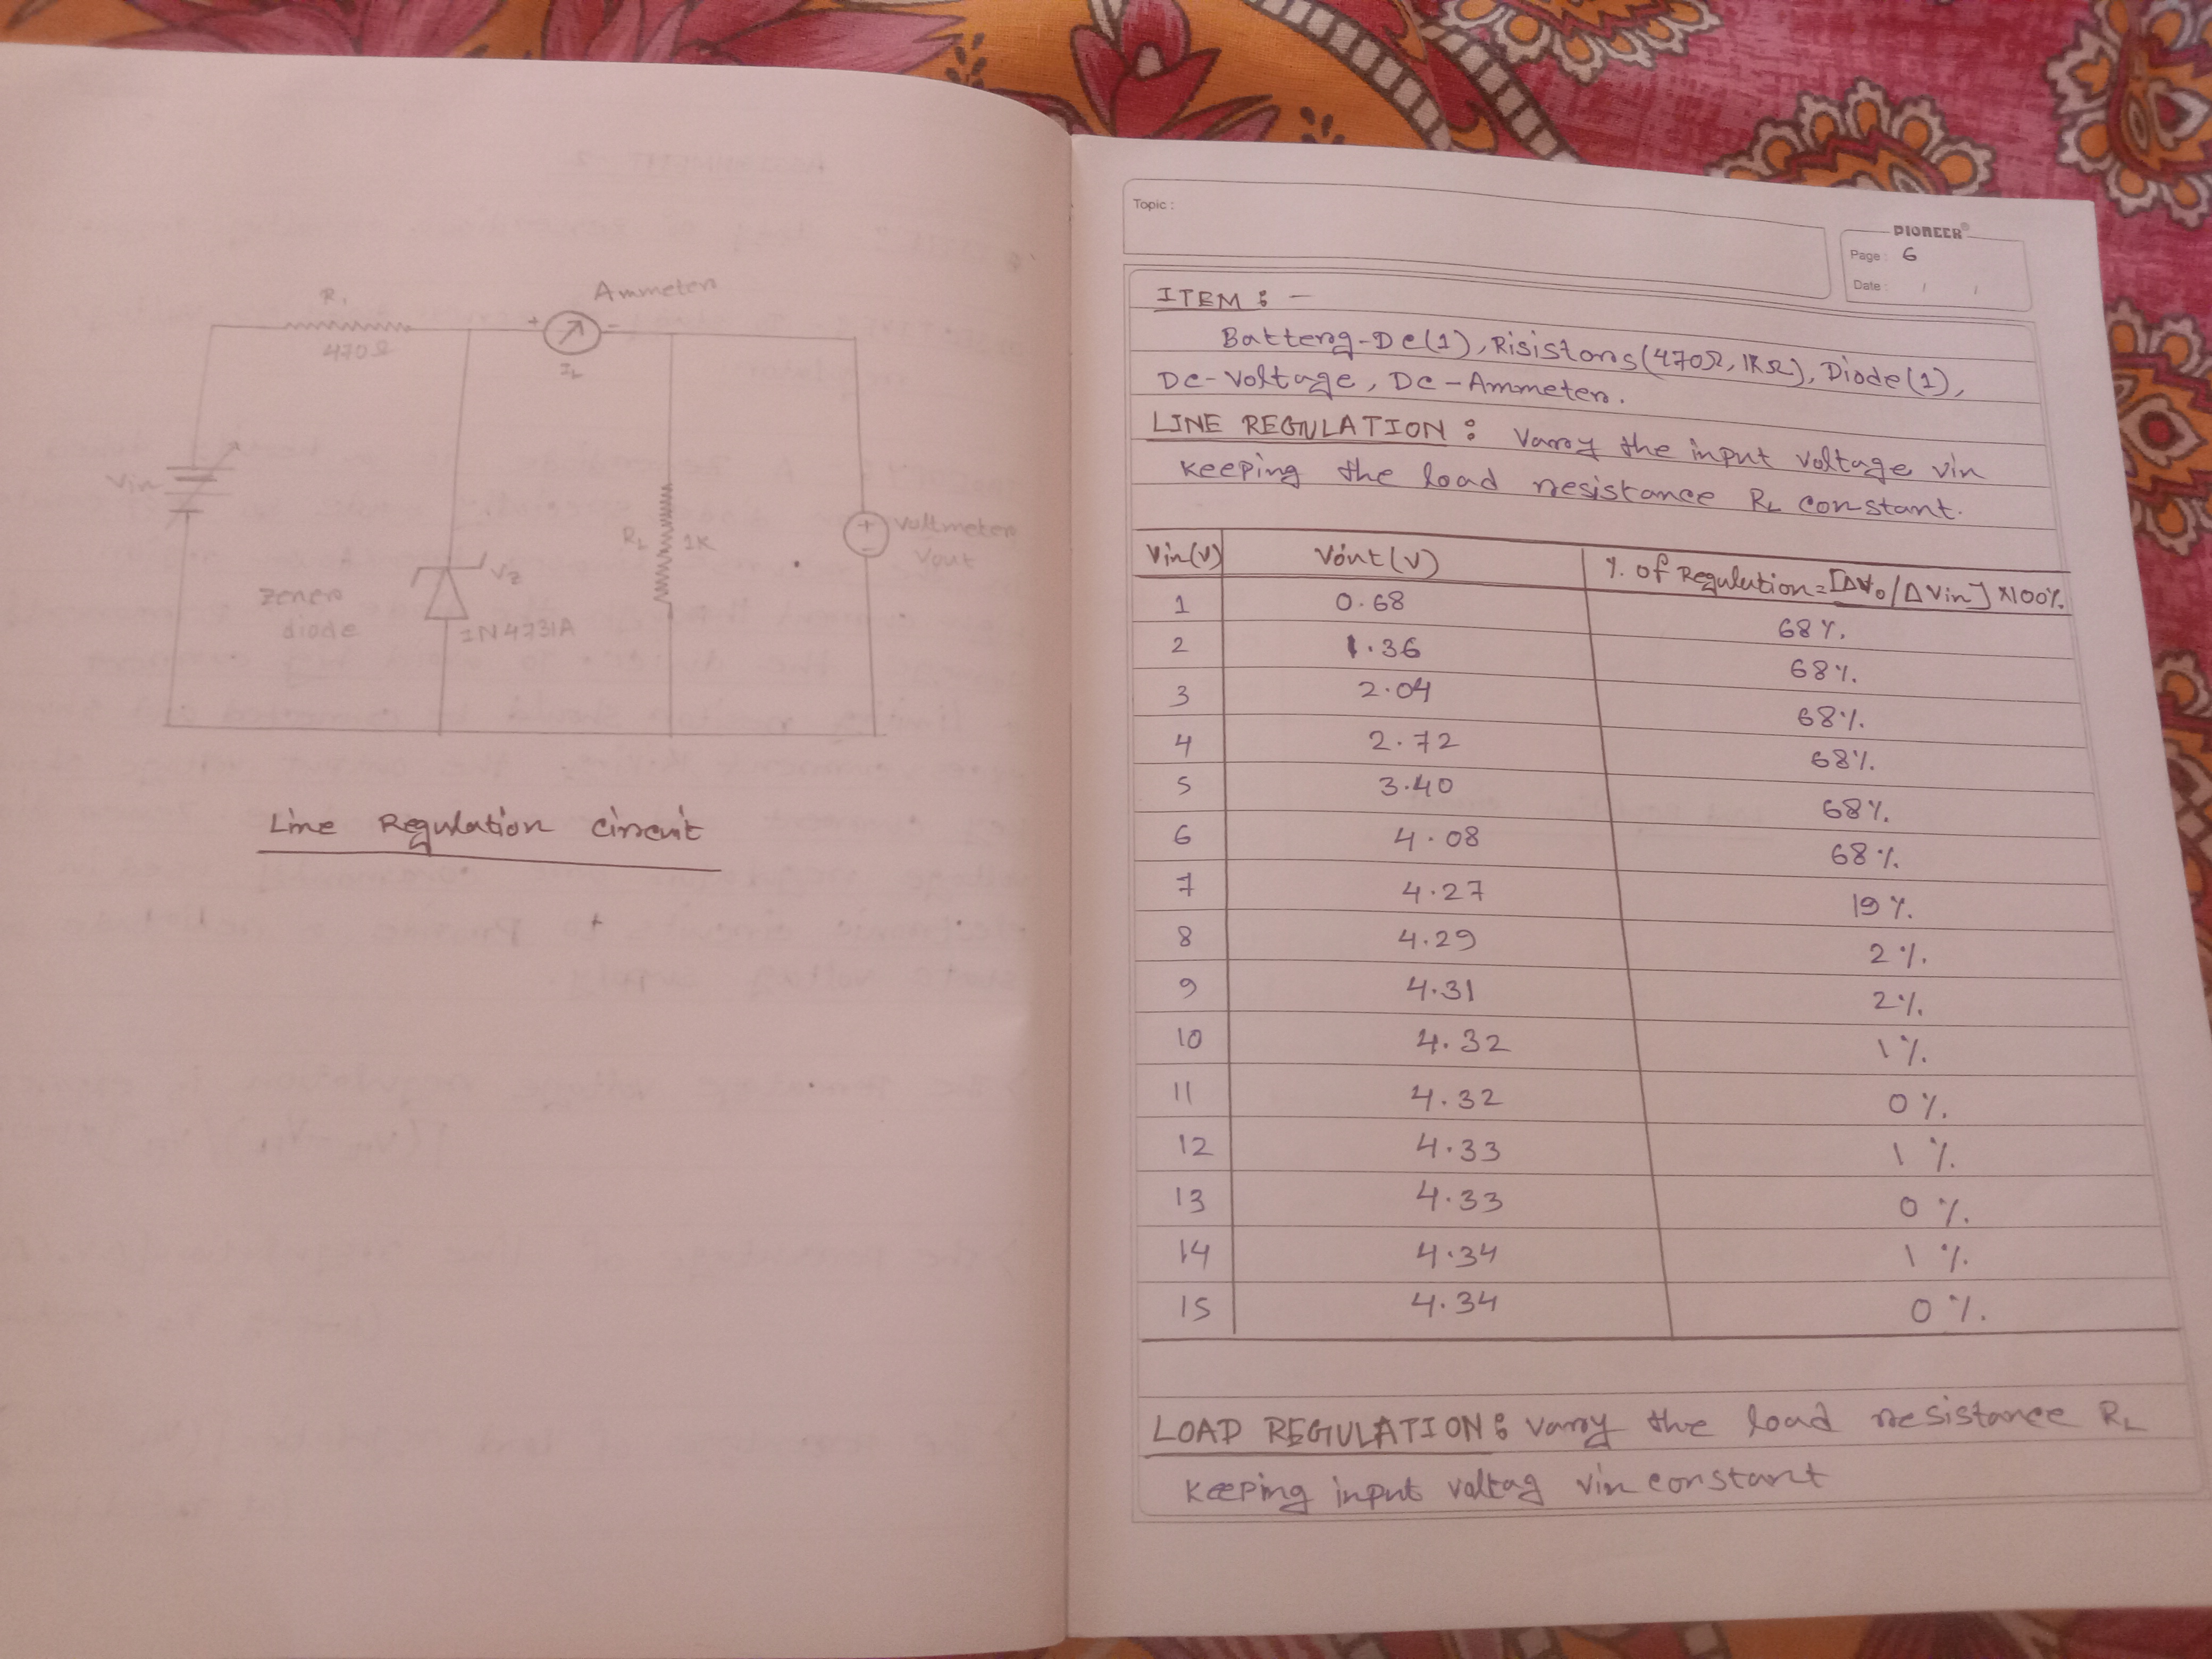 R1
470Ω
Ammeter
+ -
IL
Vin
RL 1K
+
-
Voltmeter
Vout
Vz
Zener
diode
1N4731A
Line Regulation circuit
Topic :
PIONEER®
Page : 6
Date : / /
ITEM : -
Batterg-Dc(1), Risistors(470Ω, 1KΩ), Diode(1),
Dc-Voltage, Dc-Ammeter.
LINE REGULATION : Varry the input voltage vin
Keeping the load resistance RL constant.
Vin(V) Vout(V) % of Regulution = [ΔVo/ΔVin] ×100%
1 0.68 68%
2 1.36 68%
3 2.04 68%
4 2.72 68%
5 3.40 68%
6 4.08 68%
7 4.27 19%
8 4.29 2%
9 4.31 2%
10 4.32 1%
11 4.32 0%
12 4.33 1%
13 4.33 0%
14 4.34 1%
15 4.34 0%
LOAD REGULATION : varry the load resistance RL
Keeping input voltag vin constant